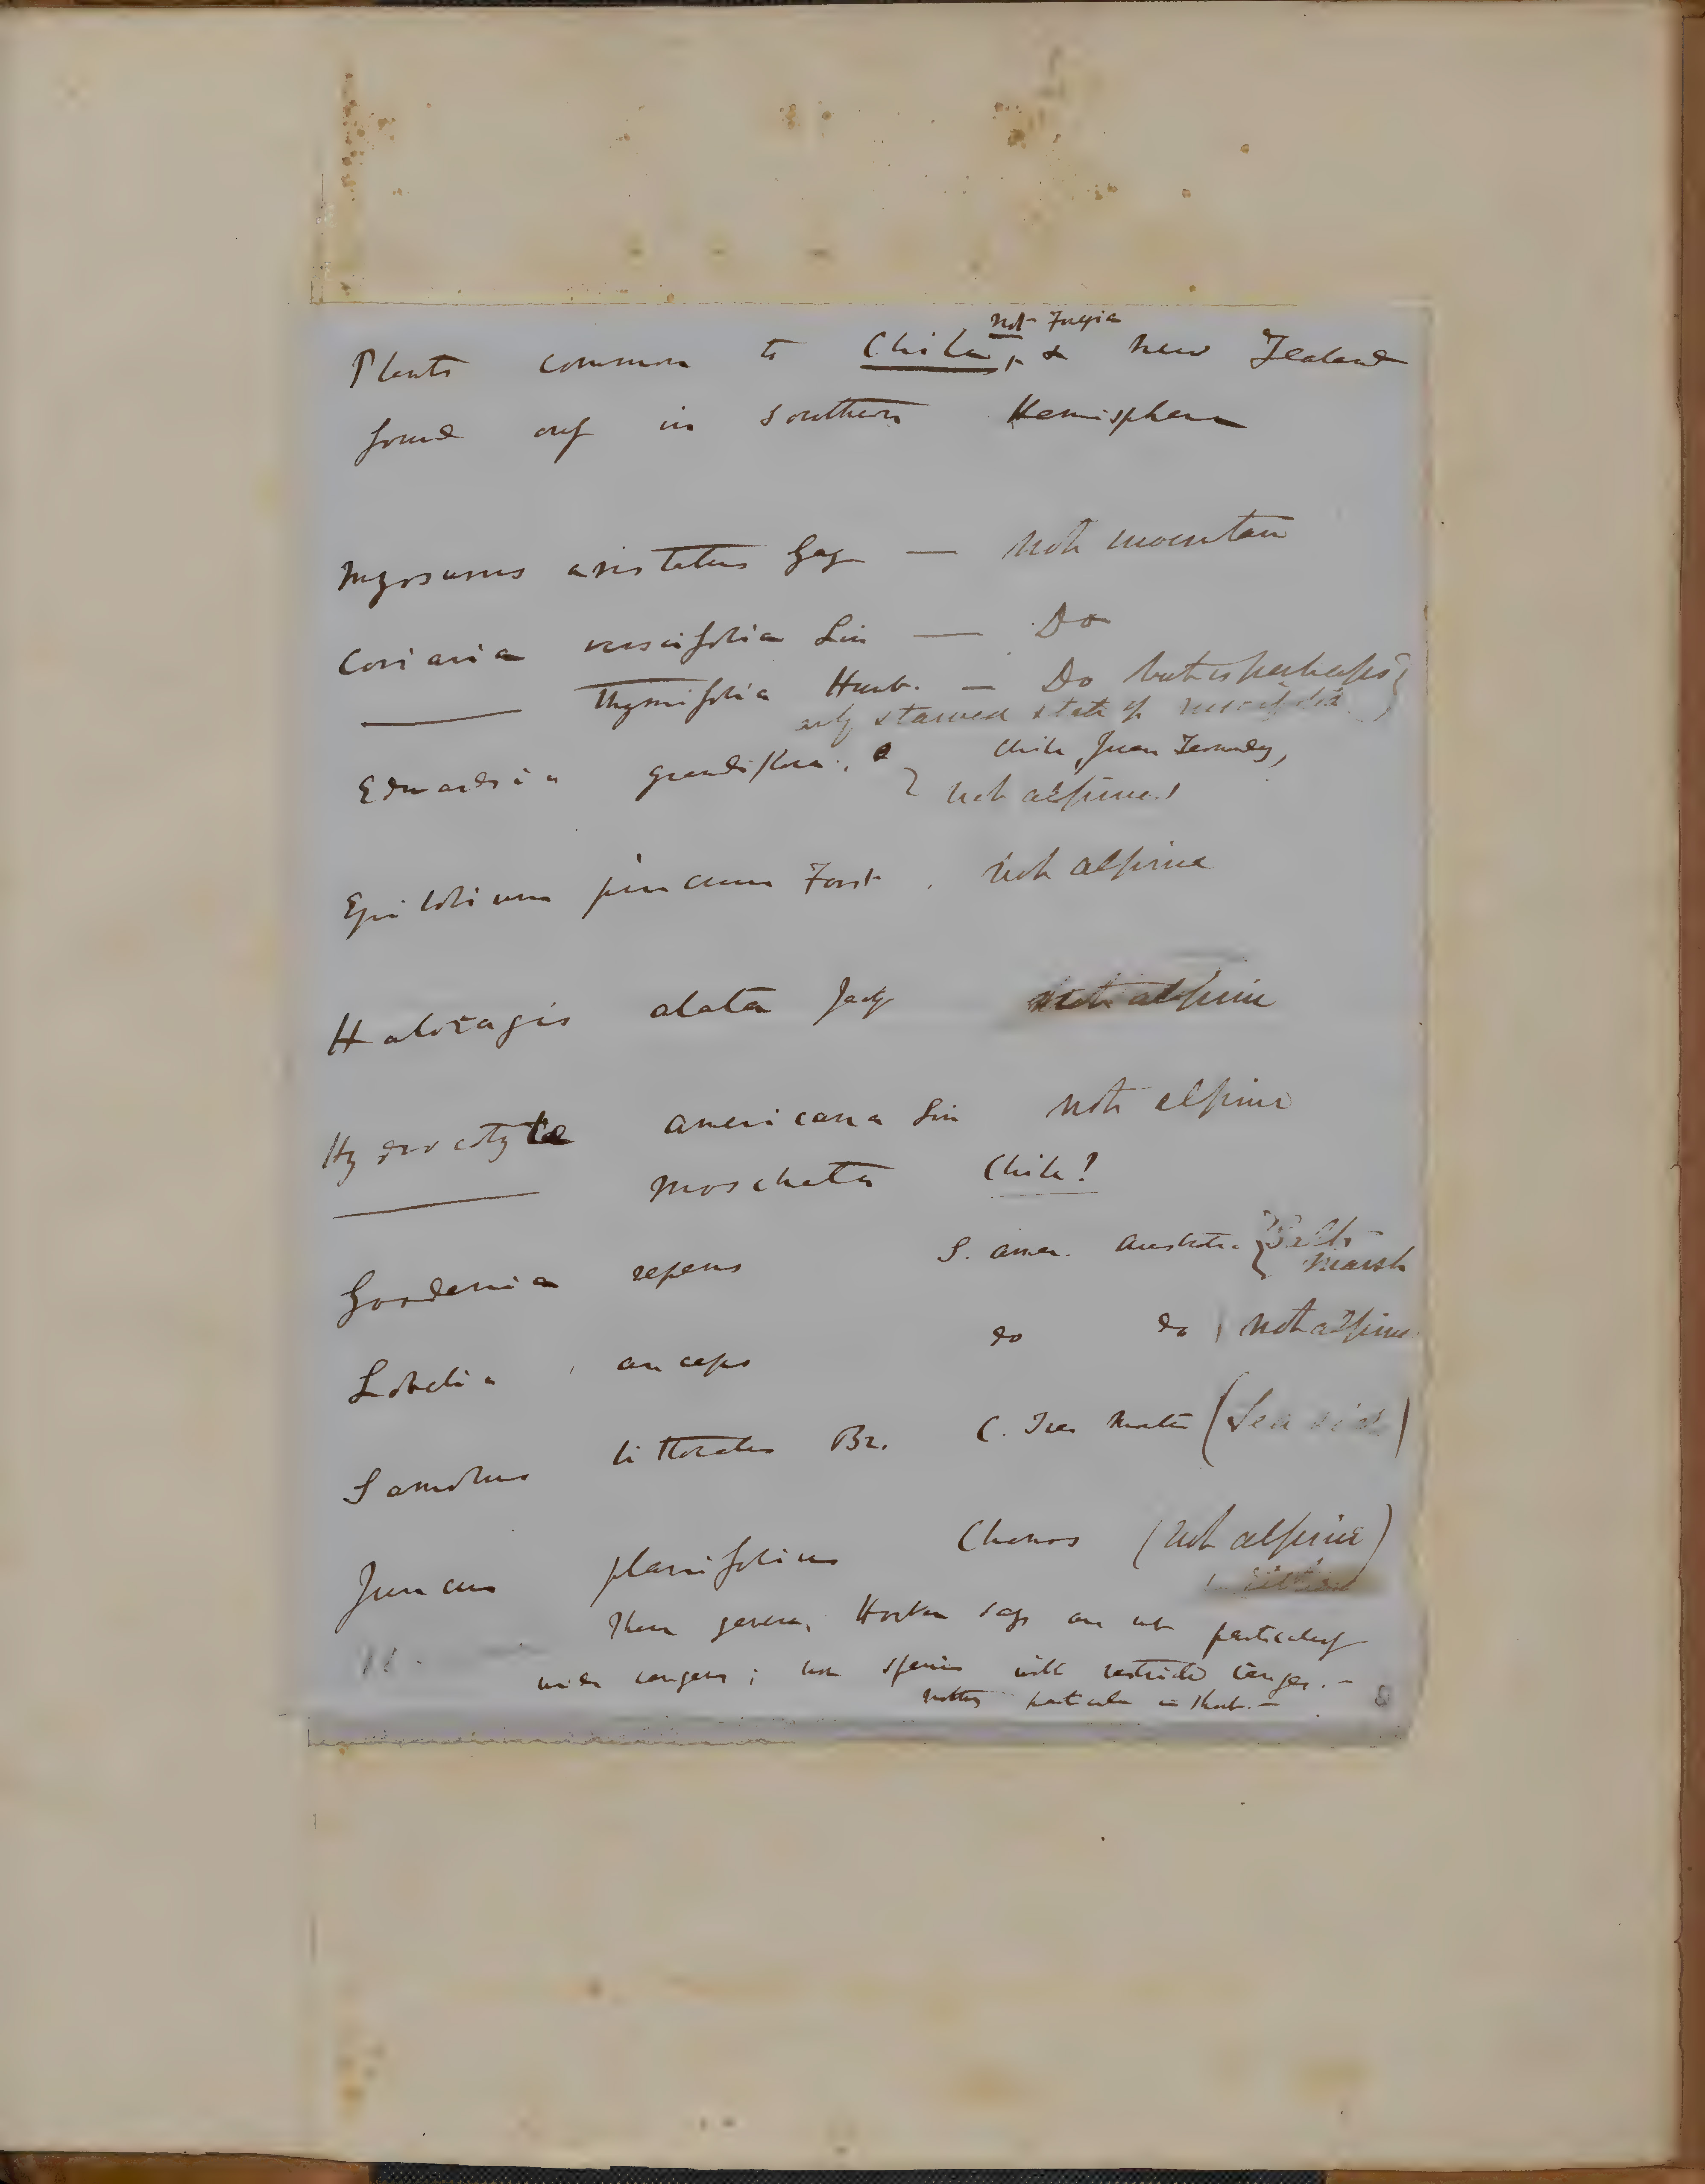 not Fuegia
Plants common to Chile, & New Zealand
found only in Southern Hemisphere
Myosurus aristatus Gay — not mountain
Coriaria ruscifolia Lin — Do
——— thymifolia Humb. — Do but is perhaps
only starved state of ruscifolia
Edwardsia grandiflora. Chile, Juan Fernandez,
not alpine!
Epilobium junceum Forst. not alpine
Haloragis alata Jacq not alpine
Hydrocotyle americana Lin not alpine
——— moschata Chile!
Goodenia repens S. Amer. Australia { Salt
Marsh
Lobelia anceps do do not alpine
Samolus littoralis Br. C. Tres Montes (Sea side)
Juncus planifolius Chonos (not alpine)
These genera, Hooker says are not particularly
wide rangers; but species with restricted ranges. —
nothing particular in that. —
8